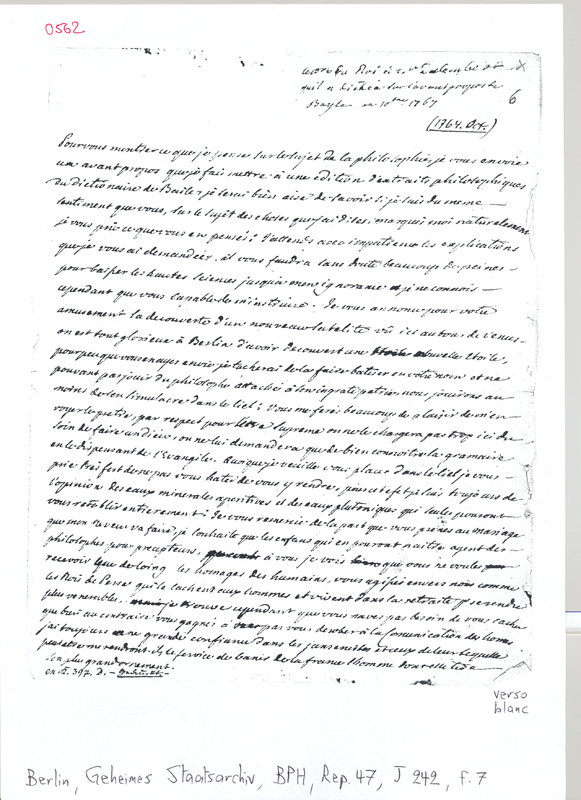 0562
qu'il a dictée sur l'avant propos de
Bayle en 10bre 1767
6
(1764. Oct.)
Pour vous montrer ce que je pense sur le sujet de la philosophie, je vous envoie
un avant propos que j'ai fais mettre à une édition d'extraits philosophiques
du dictionaire de Baile; je serai bien aise de savoir si je suis du meme
sentiment que vous, sur le sujet des choses que j'ai dites, marquéz moi naturelement
je vous prie ce que vous en pensés! J'attends avec impatience les explications
que je vous ai demandées, il vous faudra sans doute beaucoup de peines
pour baisser les hautes siences jusqu'a mon ignorance et je ne connois
cependant que vous capable de m'instruire. Je vous anonce pour votre
amusement la decouverte d'un nouveau satelite vû ici autour de Venus
on est tout glorieux à Berlin d'avoir decouvert une nouvelle Etoile,
pour peu que vous en ayes envie je tacherai de la faire batiser en votre nom et ne
pouvant pas jouir du philosophe attaché à son ingrate patrie nous jouirons au
moins de son simulacre dans le Ciel; Vous me ferés beaucoup de plaisir de m'en
par respect pour l'etre supreme on ne le chargera pas trop ici du
soin de faire un dieu, on ne lui demandera que de bien connoitre la gramaire
en le dispensant de l'Evangile. Quoique je veuille vous placer dans le Ciel je vous
prie très fort de ne pas vous hater de vous y rendre, pour cet efet je suis toujours de
l'opinion des eaux minerales aperitives et des eaux plutoniques qui seules pouront
vous retablir entierement; Je vous remercie de la part que vous prenés au mariage
que mon neveu va faire, je souhaite que les enfans qui en pouront naitre ayent des
philosophes pour precepteurs, à vous je vois que vous ne voulés
recevoir que de loing les homages des humains, vous agissés envers nous comme
les Rois de Perse qui se cachent aux hommes et vivent dans la retraite p' se rendre
plus venerables. je trouve cependant que vous n'aves pas besoin de vous cacher
que bien au contraire vous gagnés à ne pas vous derober à la comunication des homes
j'ai toujours une grande confiance dans les jansenistes et ceux de leur sequelle
peut etre vous rendront ils le service de banir de la france l'homme
son plus grand ornement.
verso
blanc
Berlin, Geheimes Staatsarchiv, BPH, Rep. 47, J 242, f. 7